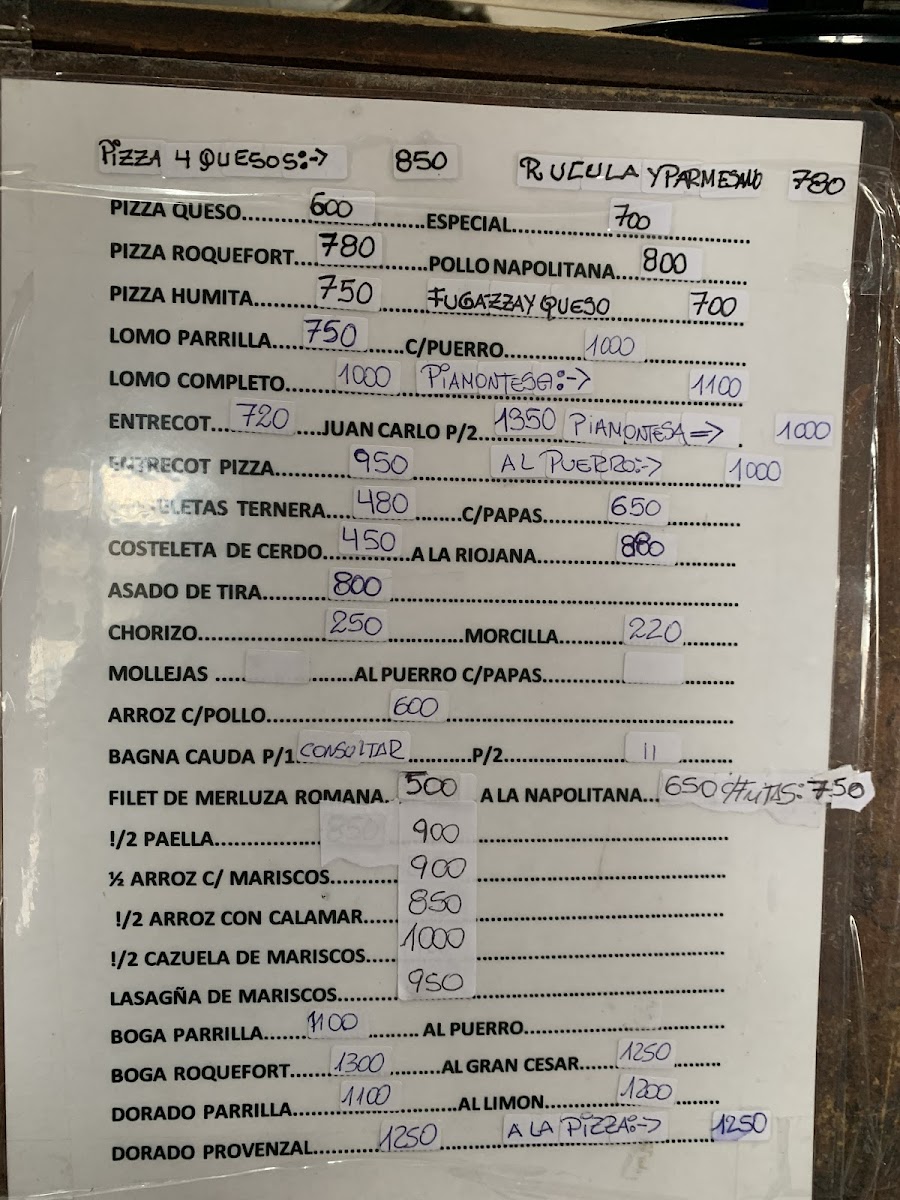 PIZZA 4 QUESOS:-> 850 RUCULA Y PARMESANO 780
PIZZA QUESO..... 600 .....ESPECIAL..... 700
PIZZA ROQUEFORT..... 780 .....POLLO NAPOLITANA..... 800
PIZZA HUMITA..... 750 FUGAZZA Y QUESO 700
LOMO PARRILLA..... 750 .....C/PUERRO..... 1000
LOMO COMPLETO..... 1000 PIAMONTESA:-> 1100
ENTRECOT..... 720 .....JUAN CARLO P/2..... 1350 PIAMONTESA=> 1000
ENTRECOT PIZZA..... 950 AL PUERRO:-> 1000
LETAS TERNERA..... 480 .....C/PAPAS..... 650
COSTELETA DE CERDO..... 450 .....A LA RIOJANA..... 880
ASADO DE TIRA..... 800
CHORIZO..... 250 .....MORCILLA..... 220
MOLLEJAS ..... .....AL PUERRO C/PAPAS.....
ARROZ C/POLLO..... 600
BAGNA CAUDA P/1 CONSULTAR .....P/2..... 11
FILET DE MERLUZA ROMANA. 500 A LA NAPOLITANA... 650 750
!/2 PAELLA..... 850 900
½ ARROZ C/ MARISCOS..... 900
!/2 ARROZ CON CALAMAR..... 850
!/2 CAZUELA DE MARISCOS..... 1000
LASAGÑA DE MARISCOS..... 950
BOGA PARRILLA..... 1100 ..... AL PUERRO.....
BOGA ROQUEFORT..... 1300 .....AL GRAN CESAR..... 1250
DORADO PARRILLA..... 1100 AL LIMON..... 1200
DORADO PROVENZAL..... 1250 A LA PIZZA:-> 1250